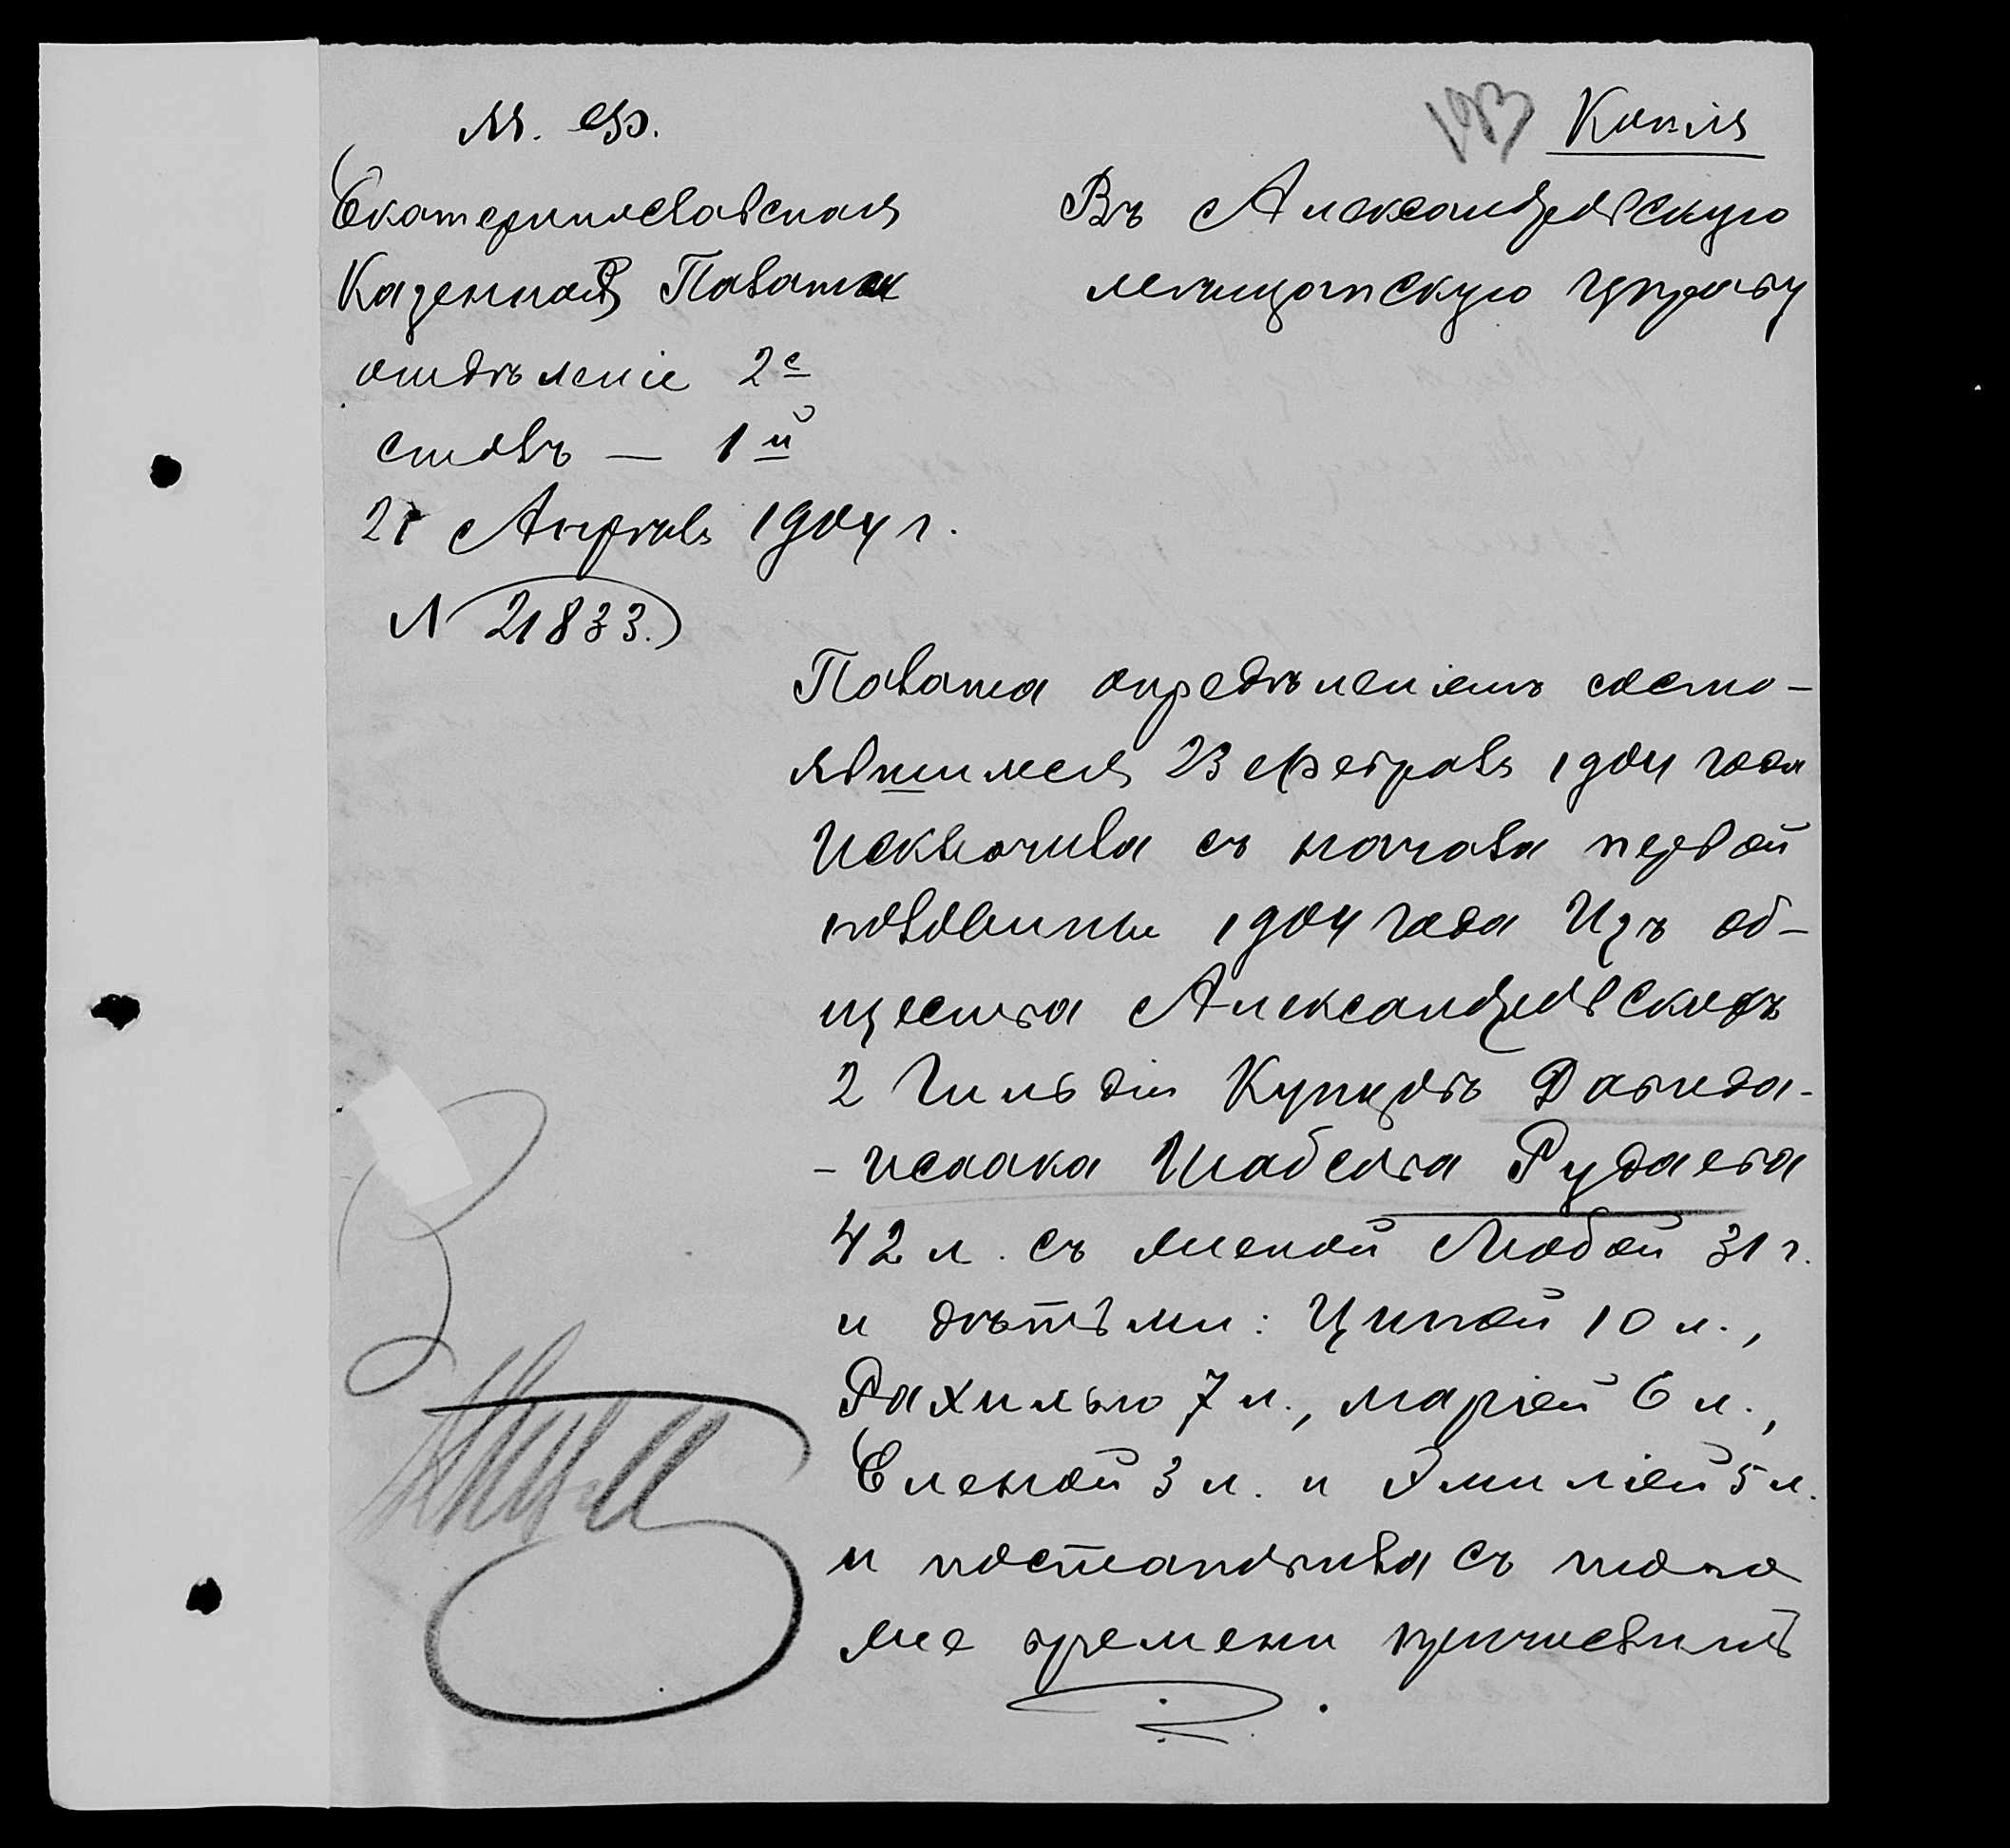 М. Ф.
Копія
Екатеринославская
Казенная Палата
отдѣленіе 2е
столъ — 1й
21 Апрѣля 1904 г.
N 21833.
Въ Александровскую
мѣщанскую управу
Палата опредѣленіемъ состо-
явшимся 23 Февраля 1904 года
исключила съ начала первой
половины 1904 года изъ об-
щества Александровскихъ
2 Гильдіи Купцовъ Давида-
- Исаака Шабсова Рудаева
42 л. съ женой Любой 31 г.
и дѣтьми: Ципой 10 л.,
Рахилью 7 л., Маріей 6 л.,
Еленой 3 л. и Эмиліей 5 л.
и постановила съ того
же времени причислить